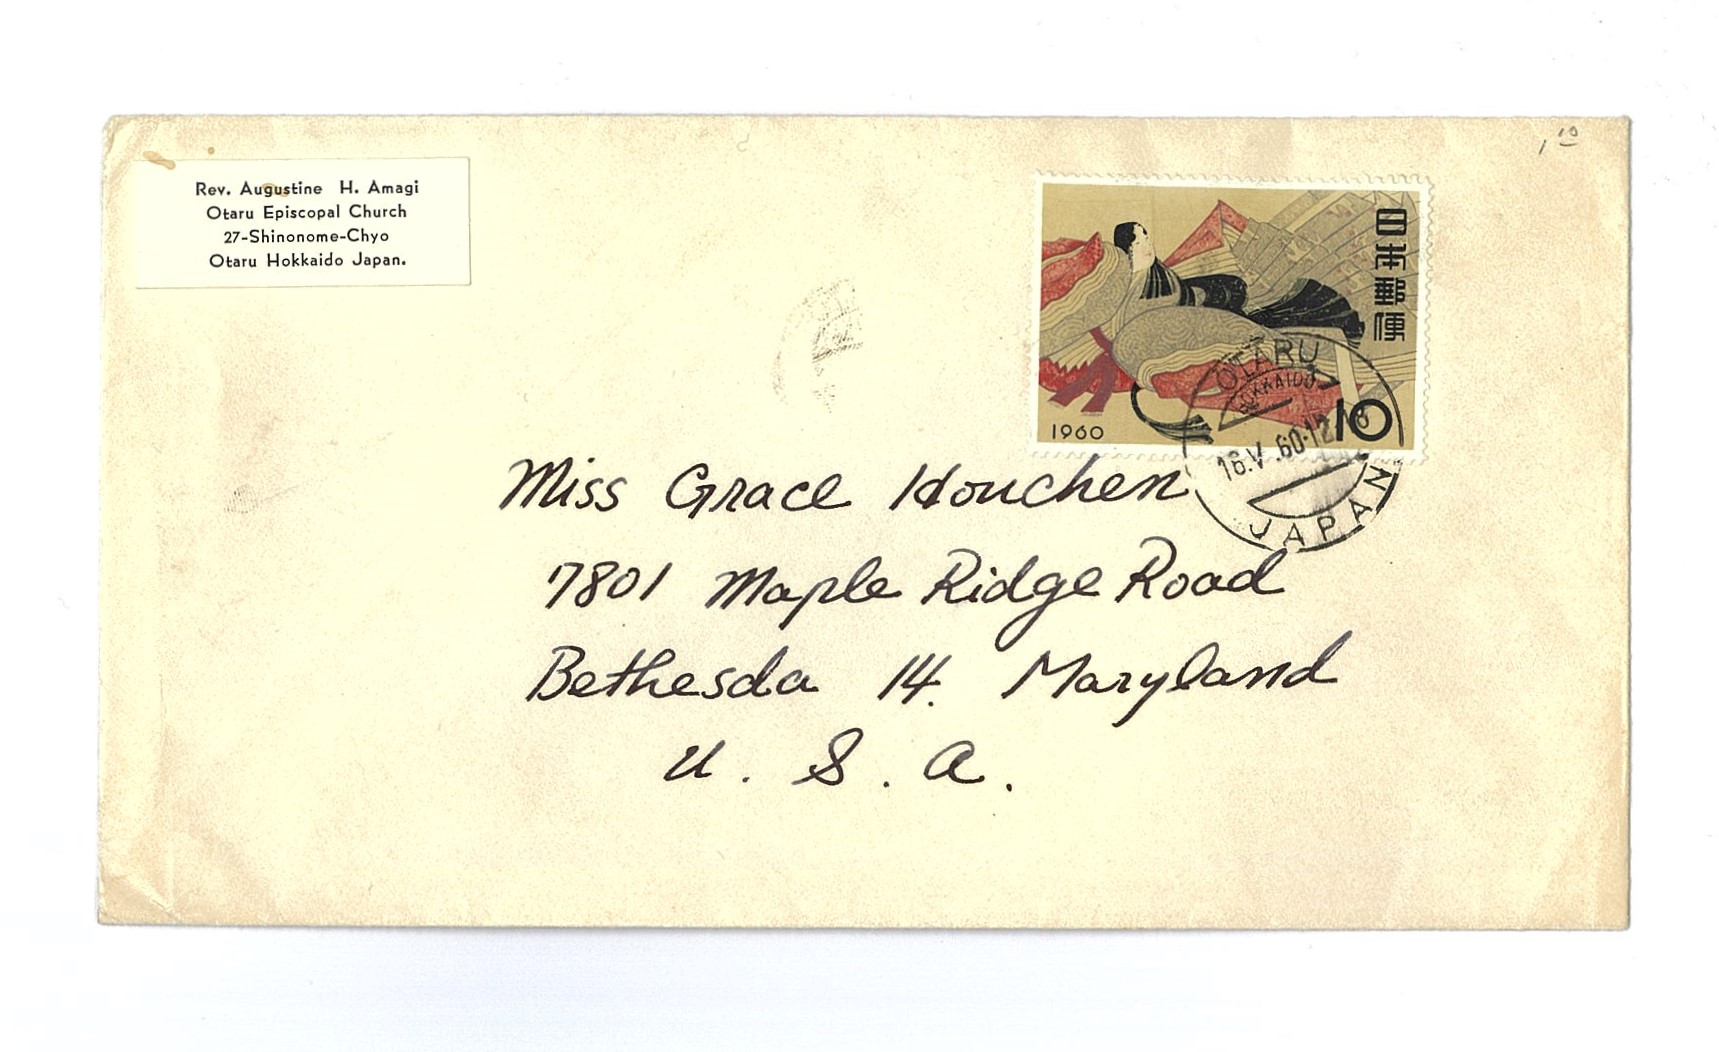 Rev. Augustine H. Amagi
Otaru Episcopal Church
27-Shinonome-Chyo
Otaru Hokkaido Japan.
日本郵便
1960
10
OTARU
HOKKAIDO
16.V.60.12
JAPAN
Miss Grace Houchen
7801 Maple Ridge Road
Bethesda 14. Maryland
U. S. A.